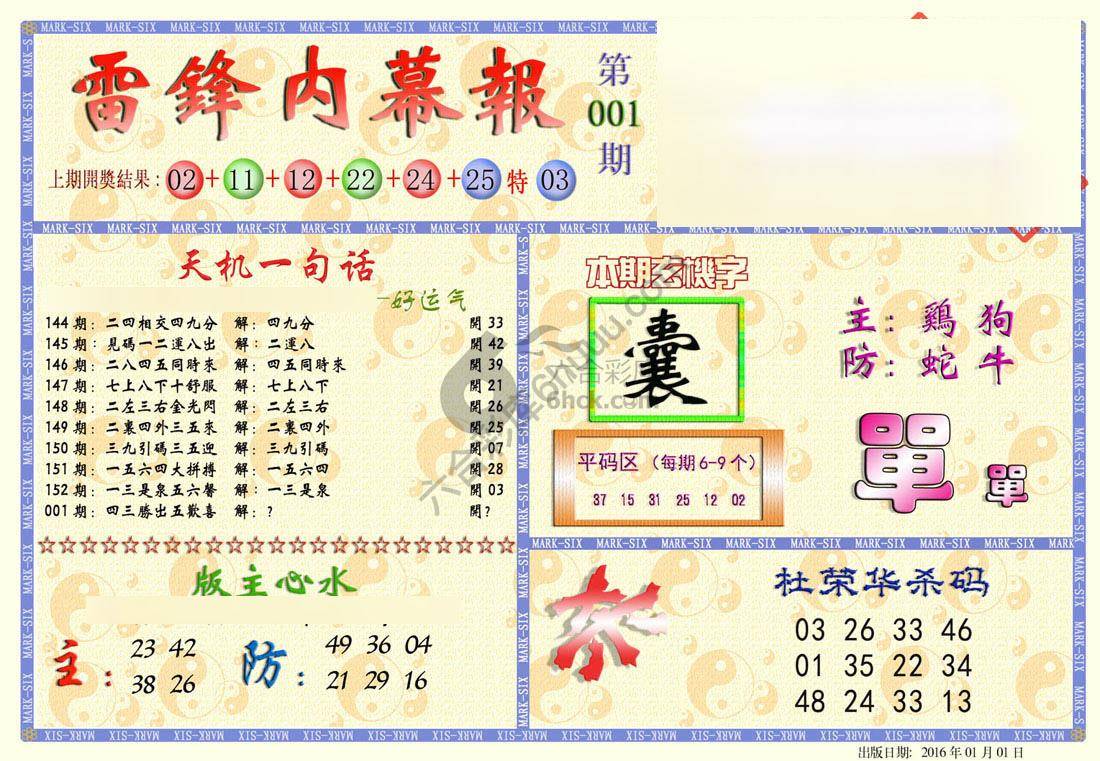 雷鋒内幕報
第
001
期
上期開獎結果：02+11+12+22+24+25 特 03
天机一句话
-好运气
144 期：二四相交四九分 解：四九分 開 33
145 期：見碼一二運八出 解：二運八 開 42
146 期：二八四五同時來 解：四五同時來 開 39
147 期：七上八下十舒服 解：七上八下 開 21
148 期：二左三右金光閃 解：二左三右 開 26
149 期：二裏四外三五來 解：二裏四外 開 25
150 期：三九引碼三五迎 解：三九引碼 開 07
151 期：一五六四大拼搏 解：一五六四 開 28
152 期：一三是泉五六馨 解：一三是泉 開 03
001 期：四三勝出五歡喜 解：? 開?
☆☆☆☆☆☆☆☆☆☆☆☆☆☆☆☆☆☆☆☆☆☆☆☆
版主心水
主： 23 42
38 26
防： 49 36 04
21 29 16
本期玄機字
囊
平码区（每期 6-9 个）
37 15 31 25 12 02
主：鷄 狗
防：蛇 牛
單 單
杀
杜荣华杀码
03 26 33 46
01 35 22 34
48 24 33 13
出版日期: 2016 年 01 月 01 日
MARK-SIX
六合彩库
6hck.com